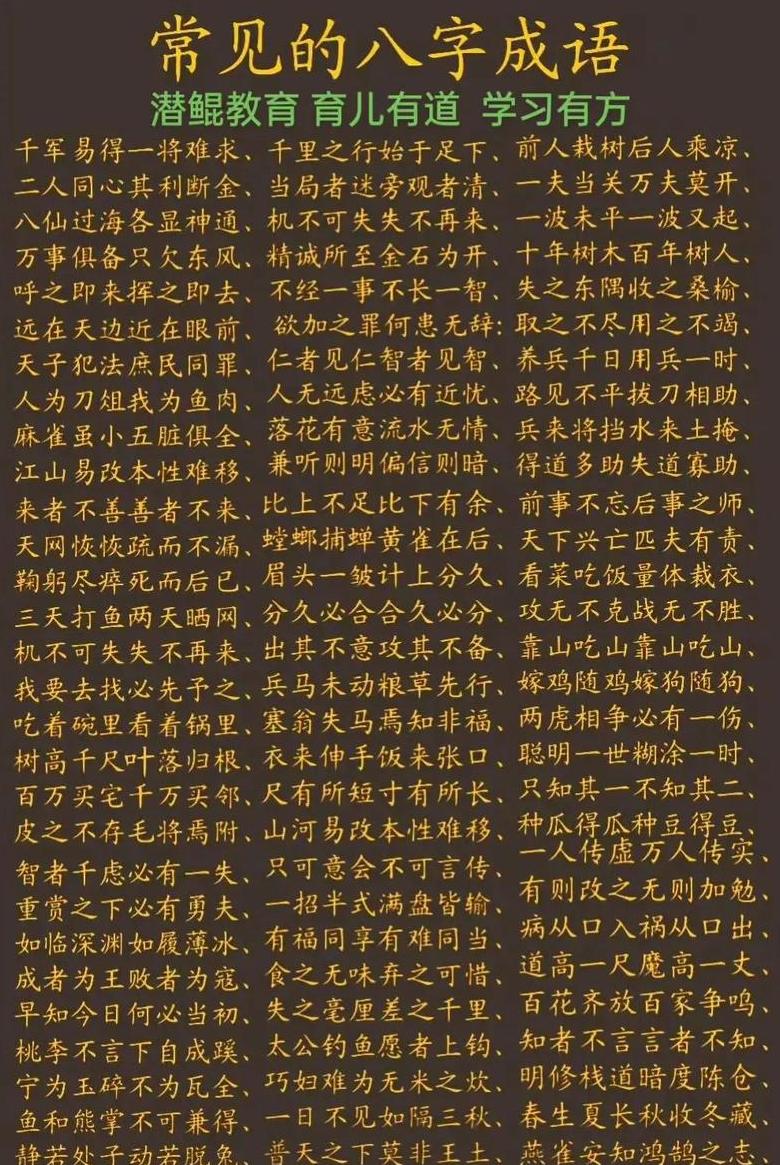 常见的八字成语
潜鲲教育 育儿有道 学习有方
千军易得一将难求、千里之行始于足下、前人栽树后人乘凉、
二人同心其利断金、当局者迷旁观者清、一夫当关万夫莫开、
八仙过海各显神通、机不可失失不再来、一波未平一波又起、
万事俱备只欠东风、精诚所至金石为开、十年树木百年树人、
呼之即来挥之即去、不经一事不长一智、失之东隅收之桑榆、
远在天边近在眼前、欲加之罪何患无辞:取之不尽用之不竭、
天子犯法庶民同罪、仁者见仁智者见智、养兵千日用兵一时、
人为刀俎我为鱼肉、人无远虑必有近忧、路见不平拔刀相助、
麻雀虽小五脏俱全、落花有意流水无情、兵来将挡水来土掩、
江山易改本性难移、兼听则明偏信则暗、得道多助失道寡助、
来者不善善者不来、比上不足比下有余、前事不忘后事之师、
天网恢恢疏而不漏、螳螂捕蝉黄雀在后、天下兴亡匹夫有责、
鞠躬尽瘁死而后已、眉头一皱计上分久、看菜吃饭量体裁衣、
三天打鱼两天晒网、分久必合合久必分、攻无不克战无不胜、
机不可失失不再来、出其不意攻其不备、靠山吃山靠山吃山、
我要去找必先予之、兵马未动粮草先行、嫁鸡随鸡嫁狗随狗、
吃着碗里看着锅里、塞翁失马焉知非福、两虎相争必有一伤、
树高千尺叶落归根、衣来伸手饭来张口、聪明一世糊涂一时、
百万买宅千万买邻、尺有所短寸有所长、只知其一不知其二、
皮之不存毛将焉附、山河易改本性难移、种瓜得瓜种豆得豆、
智者千虑必有一失、只可意会不可言传、一人传虚万人传实、
重赏之下必有勇夫、一招半式满盘皆输、有则改之无则加勉、
如临深渊如履薄冰、有福同享有难同当、病从口入祸从口出、
成者为王败者为寇、食之无味弃之可惜、道高一尺魔高一丈、
早知今日何必当初、失之毫厘差之千里、百花齐放百家争鸣、
桃李不言下自成蹊、太公钓鱼愿者上钩、知者不言言者不知、
宁为玉碎不为瓦全、巧妇难为无米之炊、明修栈道暗度陈仓、
鱼和熊掌不可兼得、一日不见如隔三秋、春生夏长秋收冬藏、
静若处子动若脱兔、普天之下莫非王土、燕雀安知鸿鹄之志、